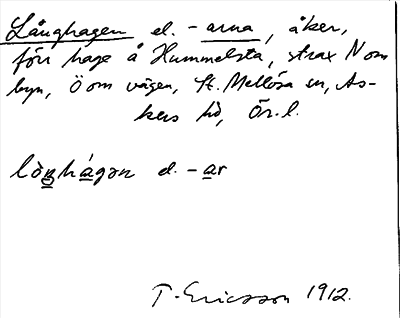 Långhagen el. -arna, åker,
förr hage å Hummelsta, strax N om
byn, Ö om vägen, St. Mellösa sn, As-
kers hd, Ör. l.
lòŋhágən el. -ar
T. Ericsson 1912.